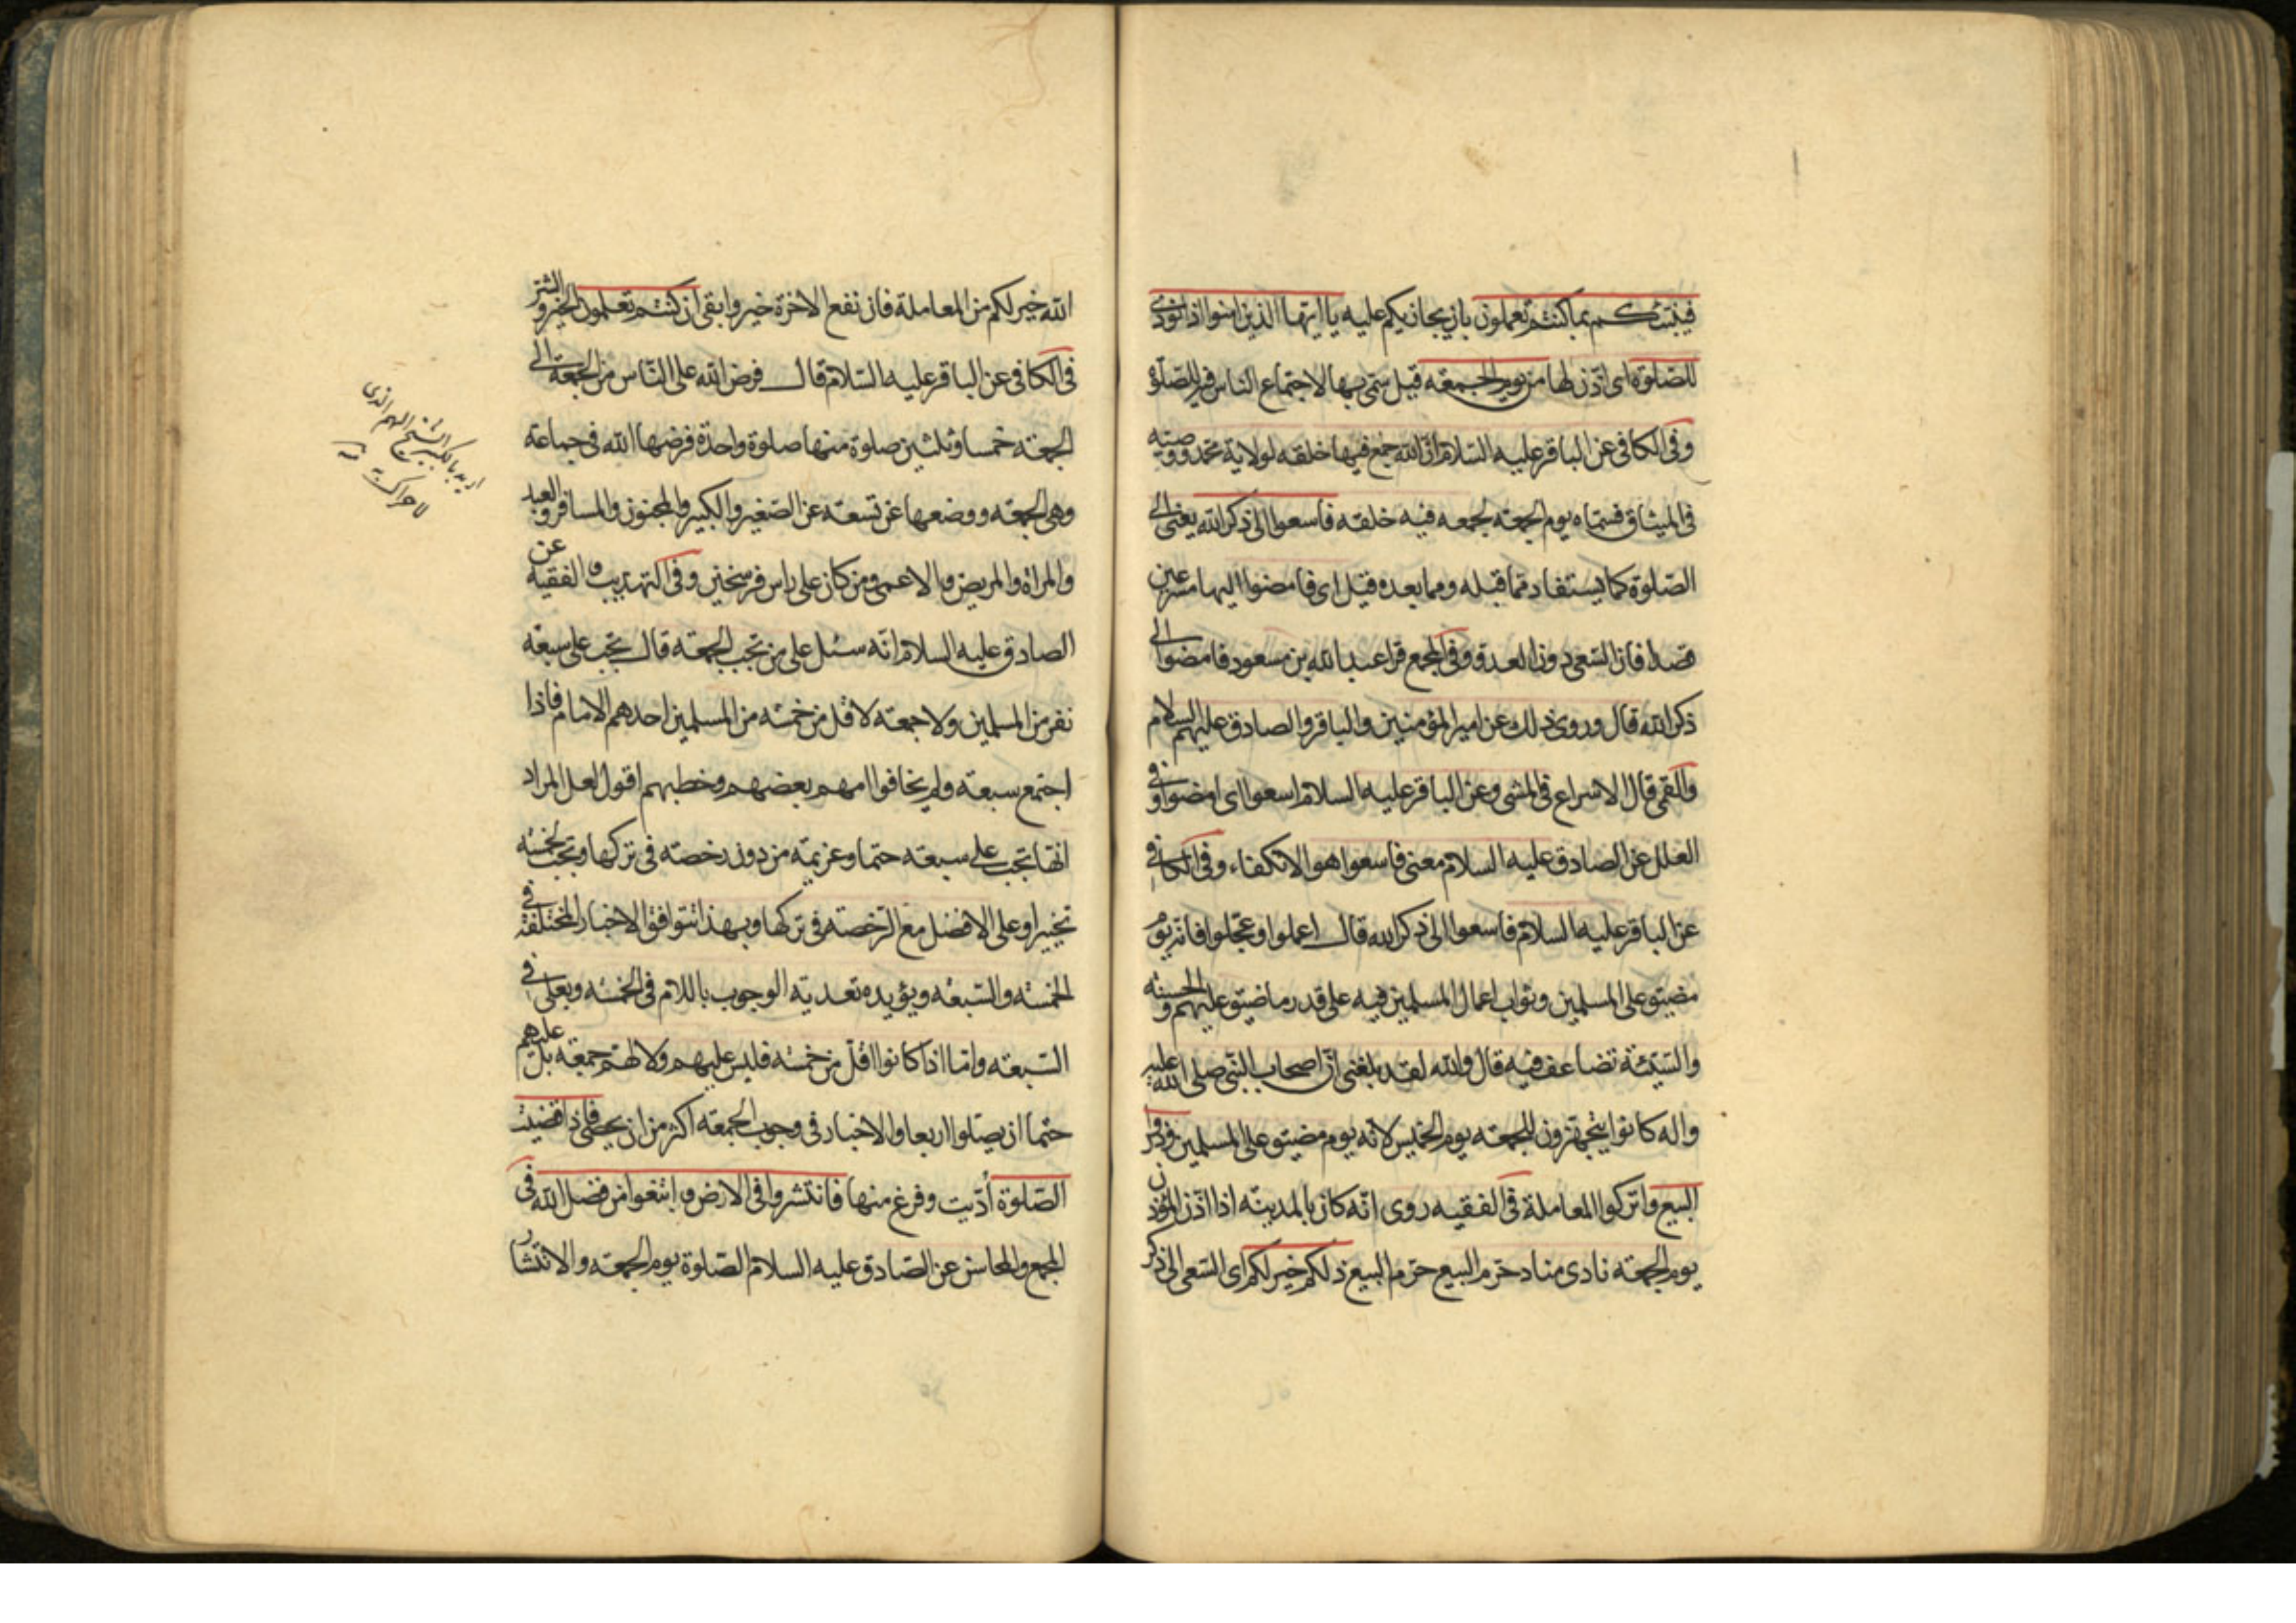 فينبئكم بما كنتم تعملون بان يجازيكم عليه يا ايها الذين امنوا اذا نودى
للصلوة اى اذن لها من يوم الجمعة قيل سمى بها لاجتماع الناس فيه للصلوة
وفى الكافى عن الباقر عليه السلام ان الله جمع فيها خلقه لولاية محمد ووصيه
فى الميثاق فسماه يوم الجمعة لجمعه فيه خلقه فاسعوا الى ذكر الله يعنى الى
الصلوة كما يستفاد مما قبله ومما بعده قيل اى فامضوا اليها مسرعين
قصدا فان السعى دون العدو وفى المجمع قرا عبد الله بن مسعود فامضوا الى
ذكر الله قال وروى ذلك عن امير المؤمنين والباقر والصادق عليهم السلام
والقمى قال الاسراع فى المشى وعن الباقر عليه السلام اسعوا اى امضوا وفى
العلل عن الصادق عليه السلام معنى فاسعوا هو الانكفاء وفى الكافى
عن الباقر عليه السلام فاسعوا الى ذكر الله قال اعملوا وعجلوا فانه يوم
مضيق على المسلمين وثواب اعمال المسلمين فيه على قدر ما ضيق عليهم والحسنة
والسيئة تضاعف فيه قال والله لقد بلغنى ان اصحاب النبى صلى الله عليه
واله كانوا يتجهزون للجمعة يوم الخميس لانه يوم مضيق على المسلمين وذروا
البيع واتركوا المعاملة فى الفقيه روى انه كان بالمدينة اذا اذن المؤذن
يوم الجمعة نادى مناد حرم البيع حرم البيع ذلكم خير لكم اى السعى الى ذكر
الله خير لكم من المعاملة فان نفع الاخرة خير وابقى ان كنتم تعلمون الخير والشر
فى الكافى عن الباقر عليه السلام قال فرض الله على الناس من الجمعة الى
الجمعة خمسا وثلثين صلوة منها صلوة واحدة فرضها الله فى جماعة
وهى الجمعة ووضعها عن تسعة عن الصغير والكبير والمجنون والمسافر والعبد
والمراة والمريض والاعمى ومن كان على راس فرسخين وفى التهذيب والفقيه عن
الصادق عليه السلام انه سئل على من تجب الجمعة قال تجب على سبعة
نفر من المسلمين ولا جمعة لاقل من خمسة من المسلمين احدهم الامام فاذا
اجتمع سبعة ولم يخافوا امهم بعضهم وخطبهم اقول لعل المراد
انها تجب على سبعة حتما وعزيمة من دون رخصة فى تركها وتجب لخمسة
تخييرا وعلى الافضل مع الرخصة فى تركها وبهذا تتوافق الاخبار المختلفة فى
الخمسة والسبعة ويؤيده تعدية الوجوب باللام فى الخمسة وبعلى فى
السبعة واما اذا كانوا اقل من خمسة فليس عليهم ولا لهم جمعة بل عليهم
حتما ان يصلوا اربعا والاخبار فى وجوب الجمعة اكثر من ان يحصى فاذا قضيت
الصلوة أديت وفرغ منها فانتشروا فى الارض وابتغوا من فضل الله فى
المجمع والمحاسن عن الصادق عليه السلام الصلوة يوم الجمعة والانتشار
اريد بالكبير الشيخ الهم الذى
لا حراك به